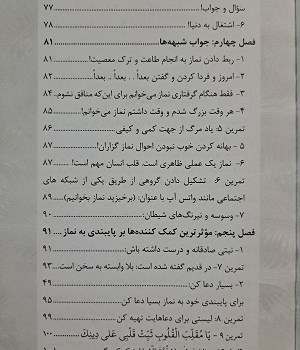 سؤال و جواب! ۷۷
۶- اشتغال به دنیا! ۷۸
فصل چهارم: جواب شبهه‌ها ۸۱
۱- ربط دادن نماز به انجام طاعت و ترک معصیت! ۸۱
۲- امروز و فردا کردن و گفتن بعداً . . بعداً .. بعداً ۸۲
۳- فقط هنگام گرفتاری نماز می‌خوانم برای این‌که منافق نشوم. ۸۴
۴- هر وقت بزرگ شدم و وقت داشتم نماز می‌خوانم! ۸۵
تمرین ۵: یاد مرگ از جهت کمی و کیفی ۸۶
۵- بهانه کردن خوب نبودن احوال نماز گزاران! ۸۷
۶- نماز یک عملی ظاهری است. قلب انسان مهم است! ۸۷
تمرین ۶: تشکیل دادن گروهی از طریق یکی از شبکه های
اجتماعی مانند واتس آپ با عنوان: (برخیزید نماز بخوانیم) ۸۹
۷- وسوسه و نیرنگ‌های شیطان: ۹۰
فصل پنجم: مؤثرترین کمک کننده‌ها بر پایبندی به نماز ۹۱
۱- نیتی صادقانه و درست داشته باش: ۹۱
تمرین ۷- در قدیم گفته شده است: بلا وابسته به سخن است. ۹۳
۲- بسیار دعا کن ۴۹
برای پایبندی خود به نماز بسیا دعا کن ۹۵
تمرین ۸: لیستی برای دعاهایت تهیه کن ۹۹
تمرین ۹ - يَا مُقَلِّبَ الْقُلُوبِ ثَبِّتْ قَلْبِي عَلَى دِينِكَ ۱۰۰